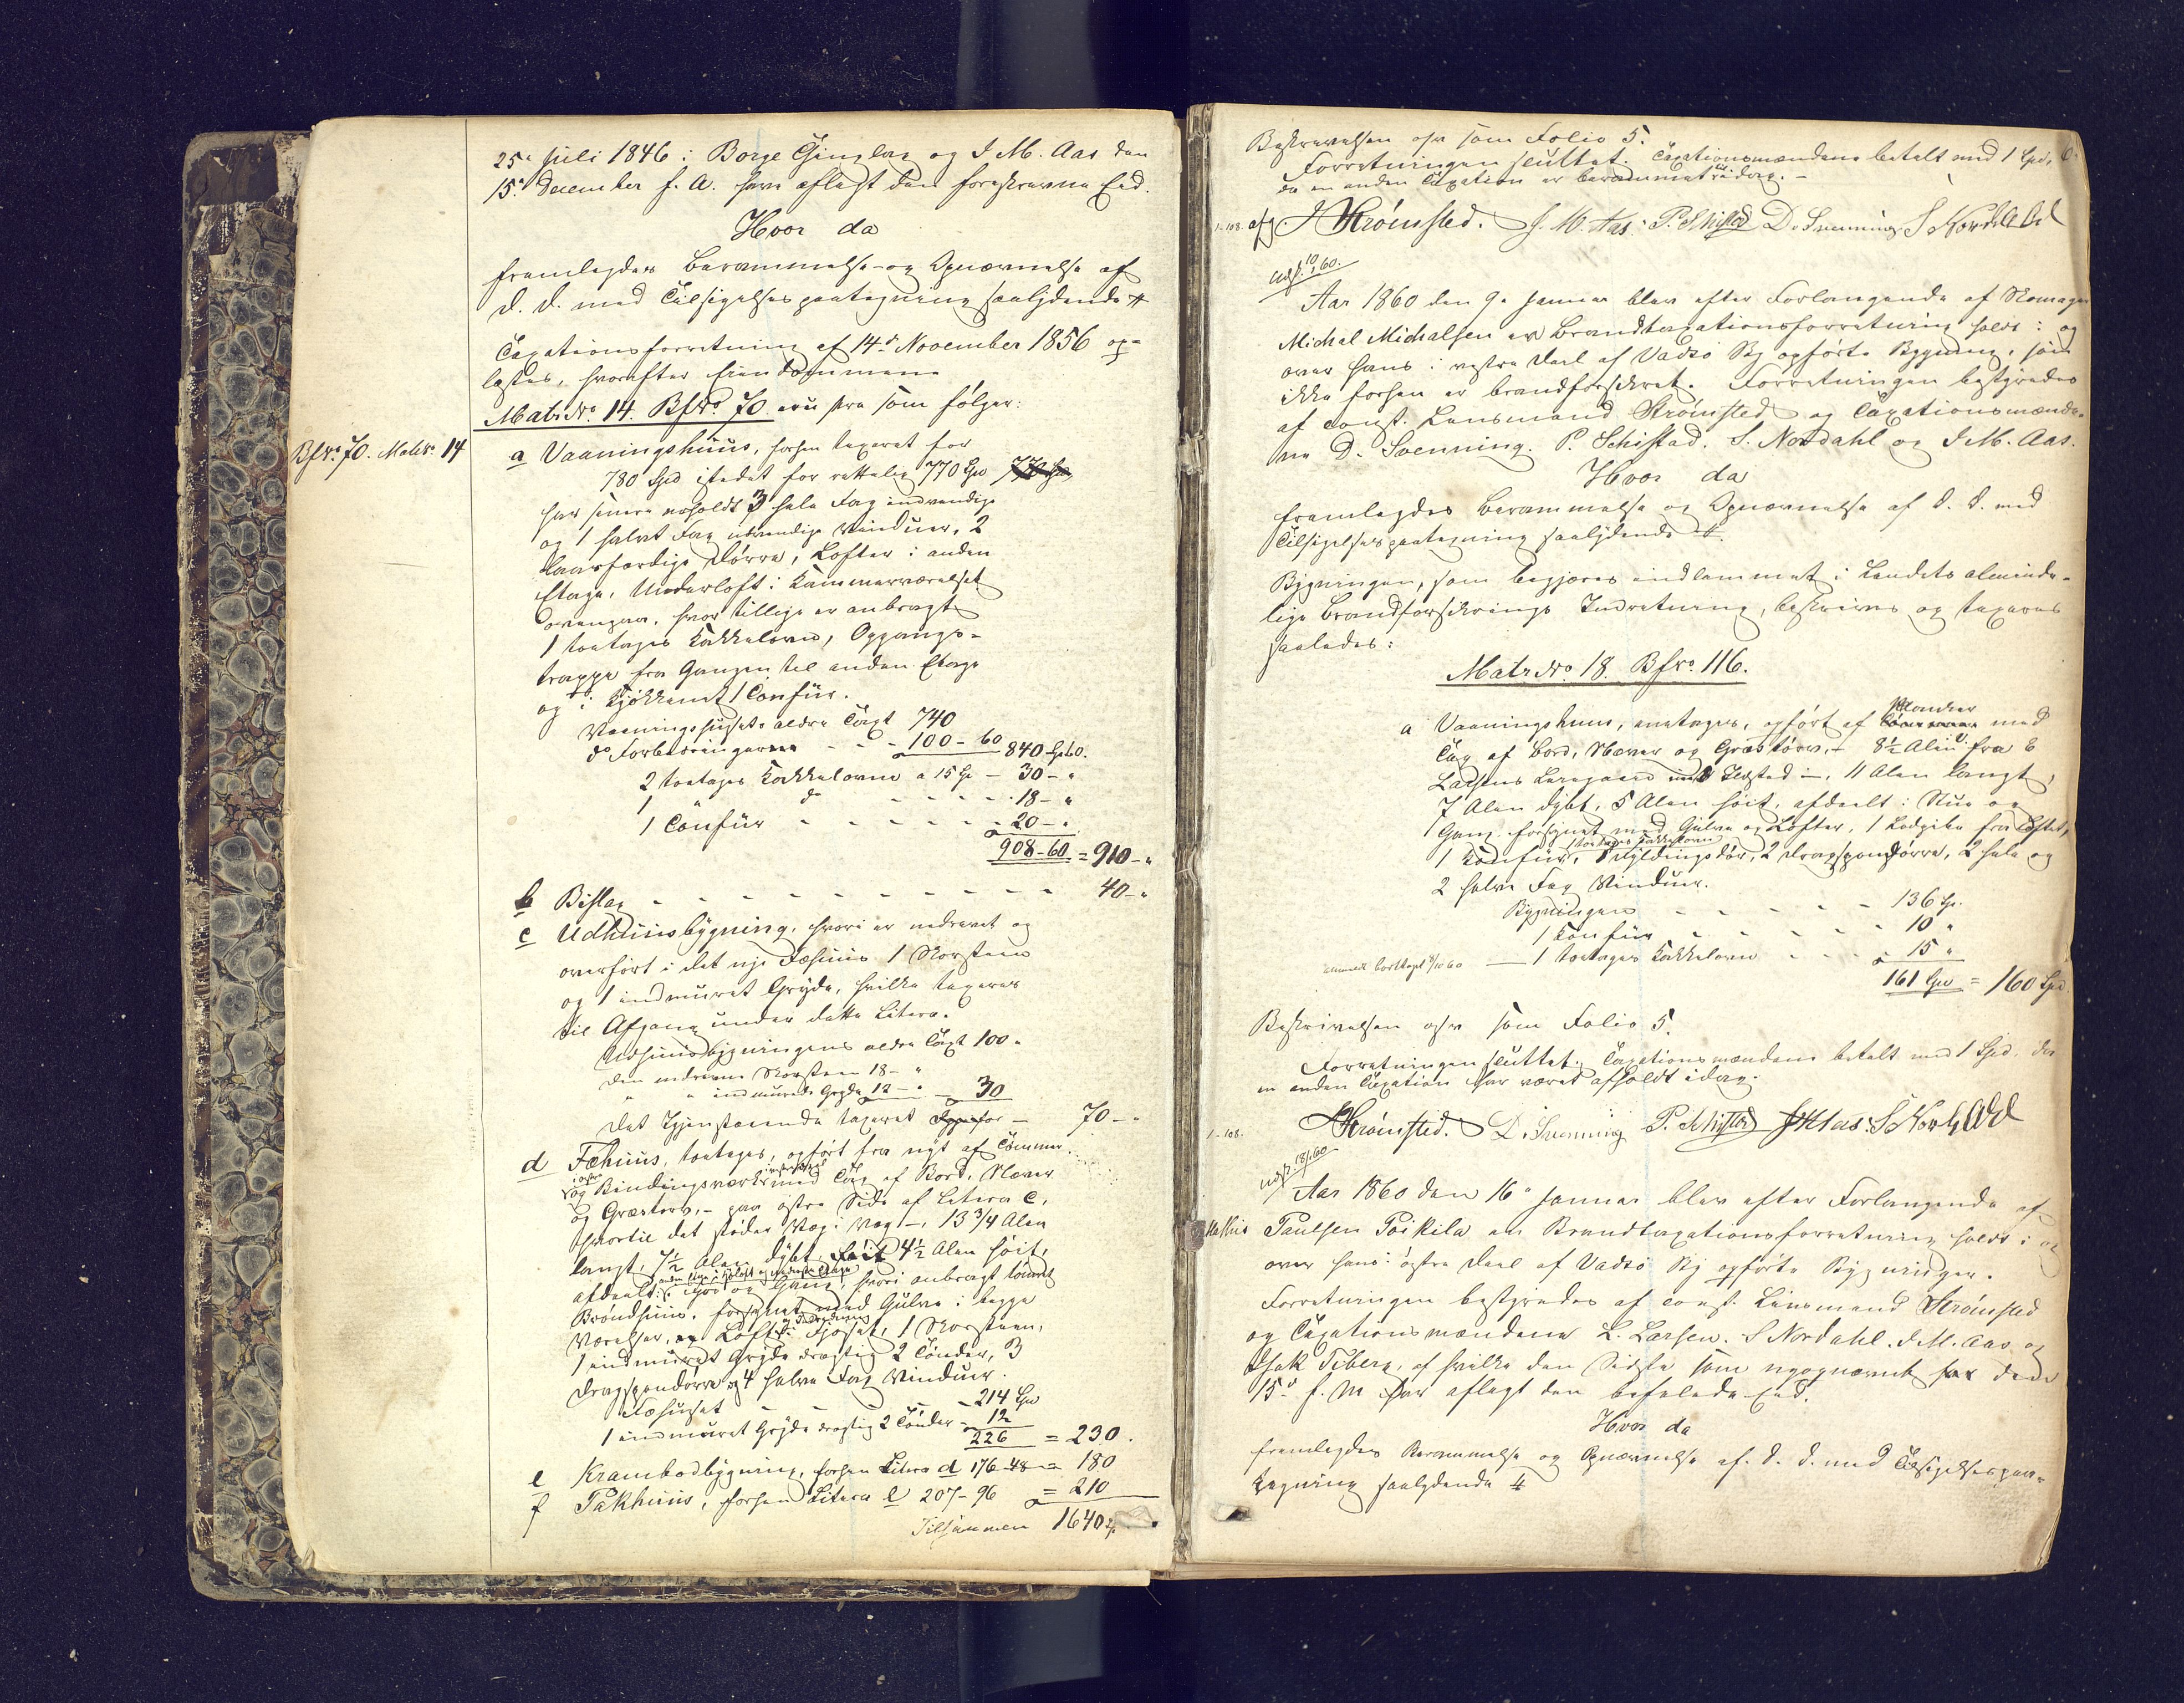 25de Juli 1846 i Borge Thinglag og J M. Aas den
15de December f. A. have aflagt den foreskrevne Eed.
Hvor da
fremlagdes Berammelse og Opnævnelse af
d. d. med Tilsigelsespaategning saalydende #
Taxationsforretning af 14de November 1856 op-
læstes, hvorefter Eiendommene
Matr No 14. Bf No 70 ere som følger:
Bf No 70. Matr No 14
a Vaaningshuus, forhen taxeret for
780 Spd istedet for rettelig 770 Spd
har senere erholdt 3 hele Fag indvendige
og 1 halvt Fag udvendige Vinduer, 2
Dørre, Lofter i anden
Etage, Underloft i Kammerværelset
ovenpaa, hvor tillige er anbragt
1 toetages Kakkelovn, Opgangs-
trappe fra Gangen til anden Etage
og i Kjøkkenet 1 Comfür.
Vaaningshusets ældre Taxt 740
do Forbedringerne - - - 100 - 60 840 Sp 60.
2 toetages Kakkelovne a 15 Sp - 30 - "
1 do - - - - - 18 - "
1 Comfür - - - - - 20 - "
908 - 60 = 910 - "
b Bislag - - - - - - - - - 40 - "
c Udhuusbygning, hvori er nedrevet og
overført i det nye Fæhuus 1 Skorsteen
og 1 indmuret Gryde, hvilke taxeres
til Afgang under dette Litera.
Udhuusbygningens ældre Taxt 100 "
den nedrevne Skorsteen 18 - "
" " indmurede Gryde 12 - " - 30
Det Igjenstaaende taxeret for - 70 - "
d Fæhuus, toetages, opført fra nyt af Tømmer
og Bindingsværk med Tag af Bord, Næver
og Græstørv, - paa østre Side af Litera c,
hvortil det støder Væg i Væg -, 13 3/4 Alen
langt, 7 1/2 Alen dybt, 4 1/2 Alen høit,
afdeelt i Fjøs og Gang, hvori anbragt tømret
Brøndhuus, forsynet med Gulve i begge
Værelser, og Loft i Fjøset, 1 Skorsteen,
1 indmuret Gryde dragtig 2 Tønder, 3
Dragspendørre og 4 halve Fag Vinduer.
Fæhuset - - - 214 Spd
1 indmuret Gryde dragtig 2 Tønder - 12
226 = 230.
e Krambodbygning, forhen Litera d 176-48 = 180
f Pakhuus, forhen Litera e 207-96 = 210
Tilsammen 1640 Sp.
Beskrivelsen osv som Folio 5.
Forretningen sluttet. Taxationsmændene betalt med 1 Spd,
da en anden Taxation er berammet idag. -
1-108. Strømsted. J. M. Aas. P. Schistad D. Svenning S Nordahl
Udf. 10/1 60.
Aar 1860 den 9de Januar blev efter Forlangende af Skomager
Michal Michalsen en Brandtaxationsforretning holdt i og
over hans i vestre Deel af Vadsø By opførte Bygning, som
ikke forhen er brandforsikret. Forretningen bestyredes
af const. Lensmand Strømsted og Taxationsmænde-
ne D. Svenning. P. Schistad. S. Nordahl og J M. Aas.
Hvor da
fremlagdes Berammelse og Opnævnelse af d. d. med
Tilsigelsespaategning saalydende #.
Bygningen, som begjæres indlemmet i Landets alminde-
lige Brandforsikrings Indretning, beskrives og taxeres
saaledes:
Matr No 18. Bf No 116.
a Vaaningshuus, eenetages, opført af Planker med
Tag af Bord, Næver og Græstørv, - 8 1/2 Alen fra E
Larsens -, 11 Alen langt,
7 Alen dybt, 5 Alen høit, afdeelt i Stue og
Gang, forsynet med Gulve og Lofter, 1 fra Loftet,
1 Komfür, 1 toetages Kakkelovn 1 Fyldingsdør, 2 Dragspendørre, 2 hele og
2 halve Fag Vinduer.
Bygningen - - - - - 136 Sp.
1 Komfür - - - - - 10 "
1 toetages Kakkelovn - - - 15 "
161 Spd = 160 Spd.
Beskrivelsen osv som Folio 5.
Forretningen sluttet. Taxationsmændene betalt med 1 Spd, da
en anden Taxation har været afholdt idag.
1-108. Strømsted. D. Svenning P. Schistad J M Aas. S Nordahl
Udf. 18/1 60
Aar 1860 den 16de Januar blev efter Forlangende af
Mathis Paulsen Poikila en Brandtaxationsforretning holdt i og
over hans i østre Deel af Vadsø By opførte Bygninger.
Forretningen bestyredes af const. Lensmand Strømsted
og Taxationsmændene L. Larsen. S Nordahl. J M. Aas og
Isak Feberg, af hvilke den Sidste som nyopnævnt har den
15de f. M aflagt den befalede Eed.
Hvor da
fremlagdes Berammelse og Opnævnelse af d. d. med Tilsigelsespaa-
tegning saalydende #